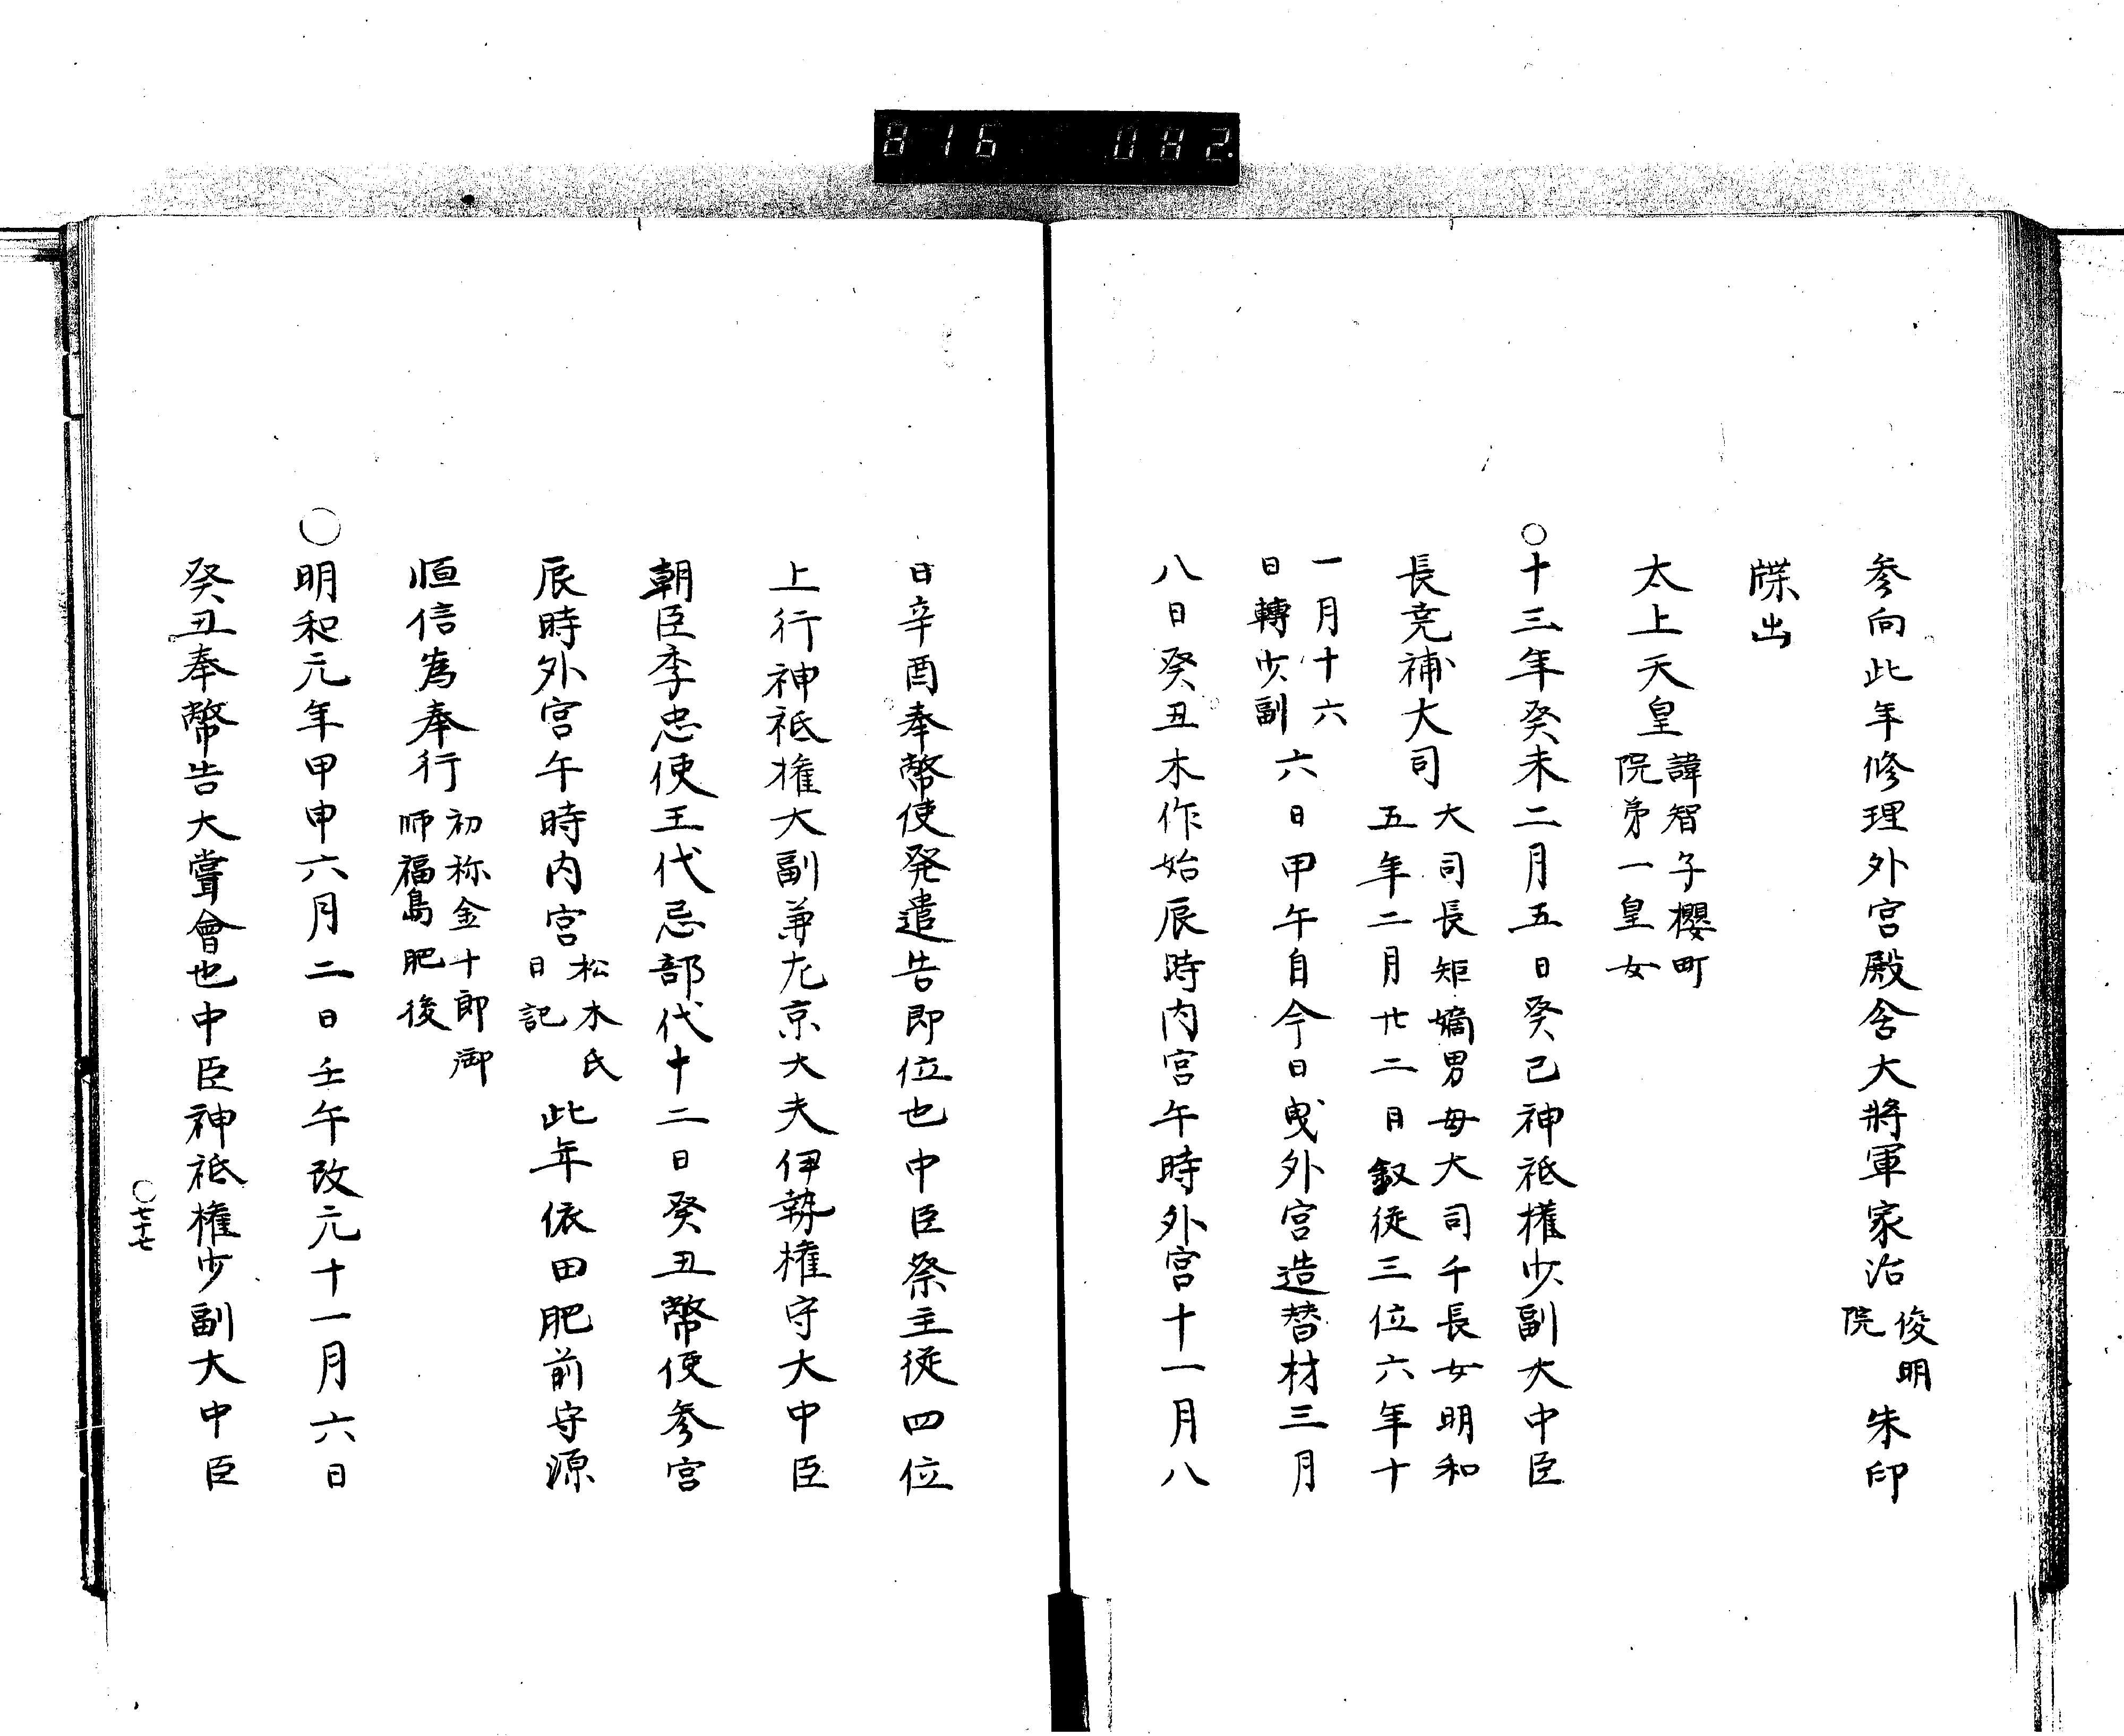 816 082
参向此年修理外宮殿舍大將軍家治
俊明
院
朱印
牒出
太上天皇
諱智子櫻町
院第一皇女
○十三年癸未二月五日癸巳神祗權少副大中臣
長堯補大司
大司長矩嫡男母大司千長女明和
五年二月廿二日叙從三位六年十
一月十六
日轉少副
六日甲午自今日曳外宮造替材三月
八日癸丑木作始辰時内宮午時外宮十一月八
日辛酉奉幣使発遣告即位也中臣祭主從四位
上行神祗権大副兼左京大夫伊勢權守大中臣
朝臣季忠使王代忌部代十二日癸丑幣使参宮
辰時外宮午時内宮
松木氏
日記
此年依田肥前守源
恒信為奉行
初称金十郎御
師福島肥後
○明和元年甲申六月二日壬午改元十一月六日
癸丑奉幣告大嘗會也中臣神祗權少副大中臣
○七十七